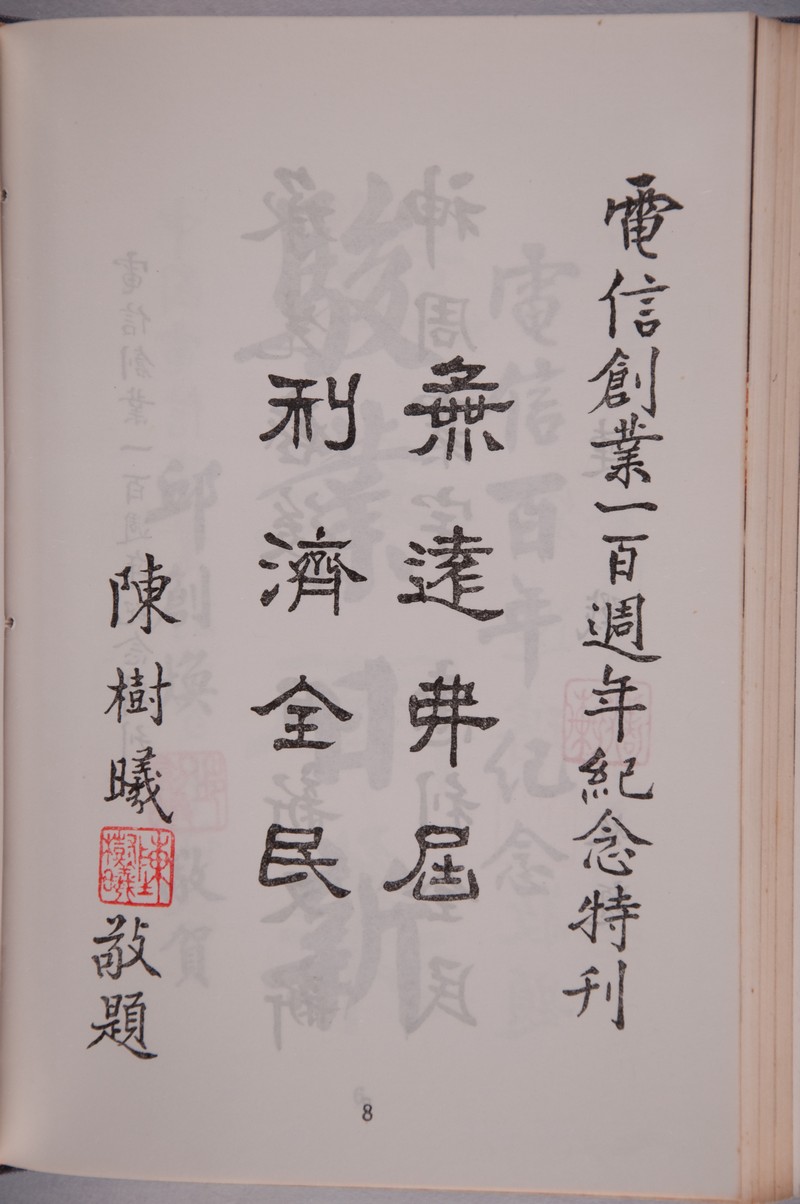 電信創業一百週年紀念特刊
無遠弗屆
利濟全民
陳樹曦
陳樹曦
敬題
8